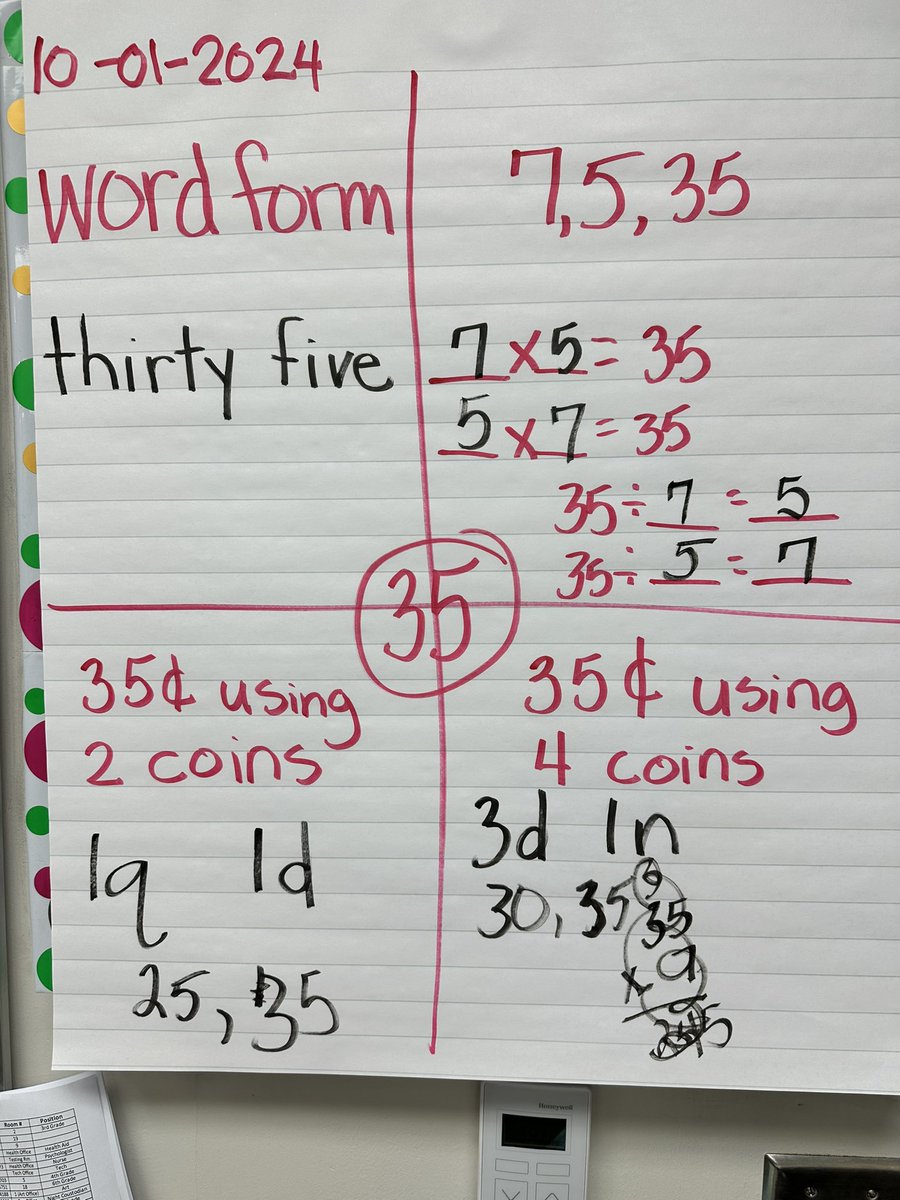 10-01-2024
Word form
thirty five
7, 5, 35
7 x 5 = 35
5 x 7 = 35
35 ÷ 7 = 5
35 ÷ 5 = 7
35
35¢ using
2 coins
1q 1d
25, 35
35¢ using
4 coins
3d 1n
30, 35
35
x 9
Honeywell
Room # Position
3rd Grade
Health Office Health Aid
Testing Rm. Psychologist
Health Office Nurse
Tech Office Tech
4th Grade
6th Grade
Art